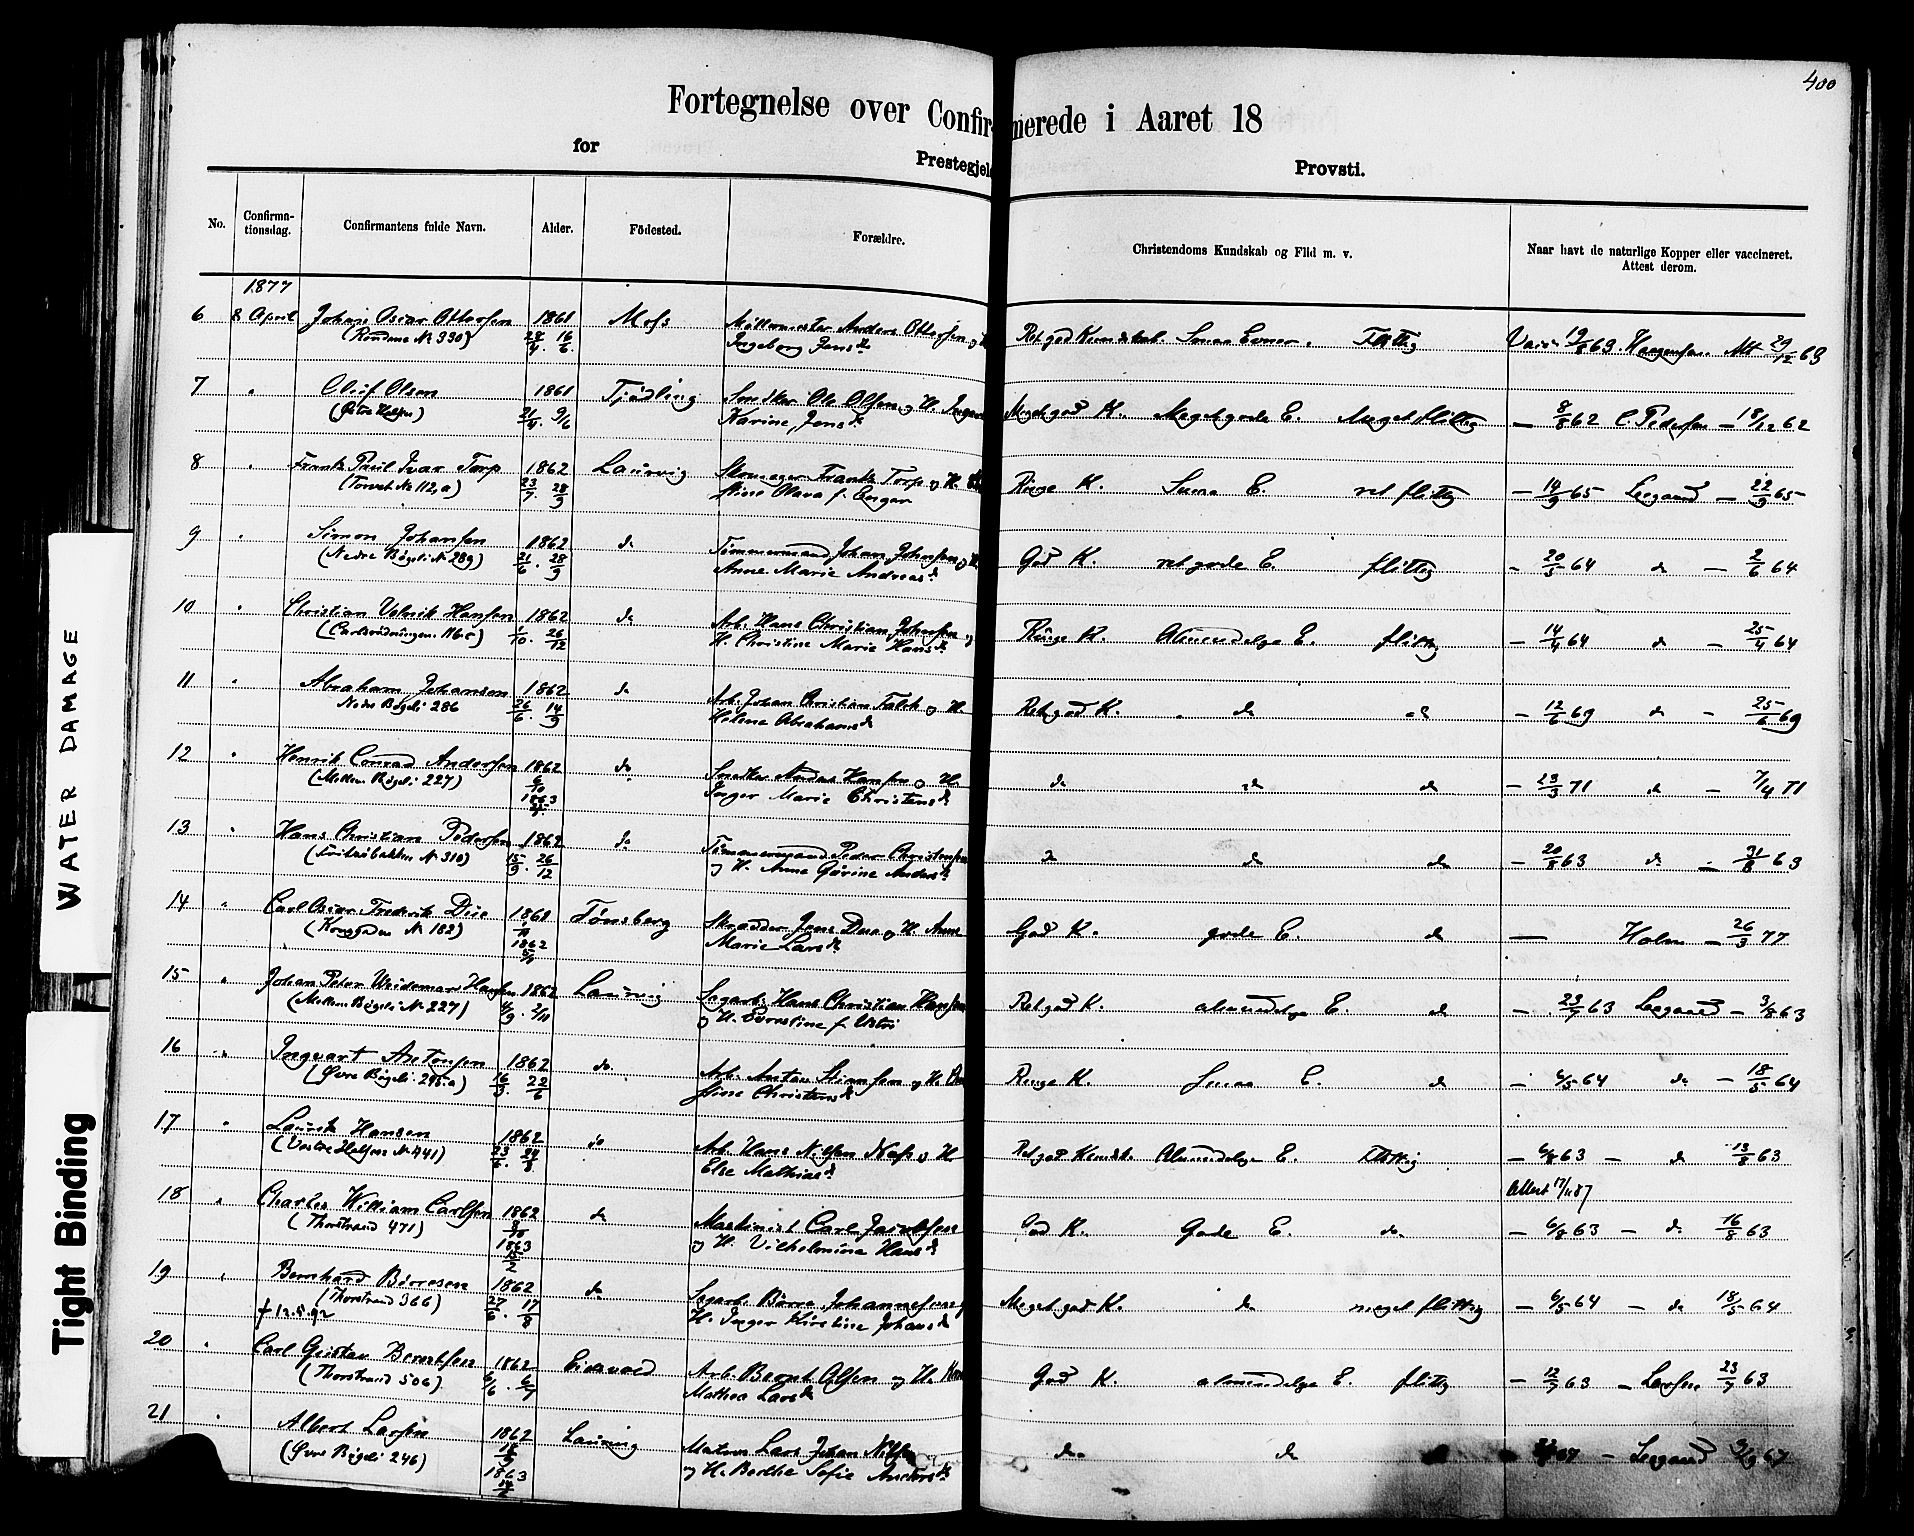 400
Fortegnelse over Confirmerede i Aaret 18
for Prestegjeld Provsti.
No. Confirma- tionsdag. Confirmantens fulde Navn. Alder. Födested. Forældre. Christendoms Kundskab og Flid m. v. Naar havt de naturlige Kopper eller vaccineret. Attest derom.
1877
6 8 April Johan Oscar Ottersen 1861 Moss Møllemester Anders Ottersen og
(Rondene No 330) 16/6 Ingeborg Jensd. Ret god Kundskab. Smaa Evner. Flittig Vacc. 19/8 63. Haagensen. Att 29/12 63
7 " Oluf Olsen 1861 Tjødling Snedker Ole Olsen og H. Inger
21/4 9/6 Karine Jensd. Meget god K. Meget gode E. Meget flittig — 8/8 62 C. Pedersen — 18/12 62
8 " Frantz Paul Ivar Torp 1862 Laurvig Skomager Frantz Torp og H.
(Torvet No 112,a) 23/7 28/9 Stine Olava f. Enger Ringe K. Smaa E. ret flittig — 14/9 65 Leegaard — 22/9 65
9 " Simon Johansen 1862 do Tømmermand Johan Johnsen og H
(Nedre Bøgeli No 289) 21/6 . 28/9 Anne Marie Andreasd. God K. ret gode E. flittig — 20/5 64 do — 2/6 64
10 " Christian Ulrik Hansen 1862 do Arb. Hans Christian Johnsen og
1/10 . 26/12 H. Christine Marie Hansd. Ringe K. Almindelige E. flittig — 14/4 64 do — 25/4 64
11 " Abraham Johansen 1862 do Arb. Johan Christian Falch og H.
Nedre Bøgeli 286 26/6 . 14/9 Helene Abrahamsd. Ret god K. do do — 12/6 69 do — 25/6 69
12 " Henrik Conrad Andersen 1862 do Snedker Andreas Hansen og H.
(Mellem Bøgeli 227) 6/10 1863 Inger Marie Christensd. do do do — 23/3 71 do — 7/4 71
13 " Hans Christian Pedersen 1862 do Tømmermand Peder Christensen
15/9 . 26/12 og H. Anne Gurine Andersd. do do do — 20/8 63 do — 31/8 63
14 " Carl Oscar Frederik Due 1861 Tønsberg Skrædder Jens Due og H. Anne
(Konggaden No 182) 1862 Marie Larsd. God K. gode E. do — Holm — 26/3 77
15 " Johan Peter Weidemar Hansen 1862 Laurvig Sagarb. Hans Christian Hansen
(Mellem Bøgeli No 227) 4/9 . 2/11 og H. Ernestine f. Ret god K. almindelige E. do — 23/7 63 Leegaard — 3/8 63
16 " Ingvart Antonsen 1862 do Arb. Anton Simonsen og H.
(Øvre Bøgeli 295.a) 16/3 22/6 Stine Christensd. Ringe K. Smaa E. do — 6/5 64 do — 18/5 64
17 " Laurits Hansen 1862 do Arb. Hans Nilsen Næss og H
(Vestre Halsen No 441) Else Mathiasd. Ret god Kundsk. Almindelige E. Flittig — 6/8 63 — do 13/8 63
Attest 17/11 87
18 " Charles William Carlsen 1862 do Maskinist Carl Jacobsen
(Thorstrand 471) 8/10 1863 15/2 og H. Vilhelmine Hansd. God K. Gode E. do — 6/8 63 — do 16/8 63
19 " Bernhard Børresen 1862 do Sagarb. Børre Johannesen og
(Thorstrand 366) 27/6 . 17/8 H. Inger Kirstine Johansd. Meget god K. do meget flittig — 6/5 64 — do 18/5 64
† 12.5.92
20 " Carl Gustav Berntsen 1862 Eidsvold Arb. Bernt Olsen og H.
(Thorstrand 506) 6/6 . 6/7 Mathea Larsd. God K. almindelige E. flittig — 12/7 63 — Larsen 23/7 63
21 " Albert Larsen 1862 Laurvig Matros Lars Johan Nilsen
(Øvre Bøgeli 246) 1863 og H. Berthe Sofie Andersd. do do 67 — Leegaard 67
WATER DAMAGE
Tight Binding